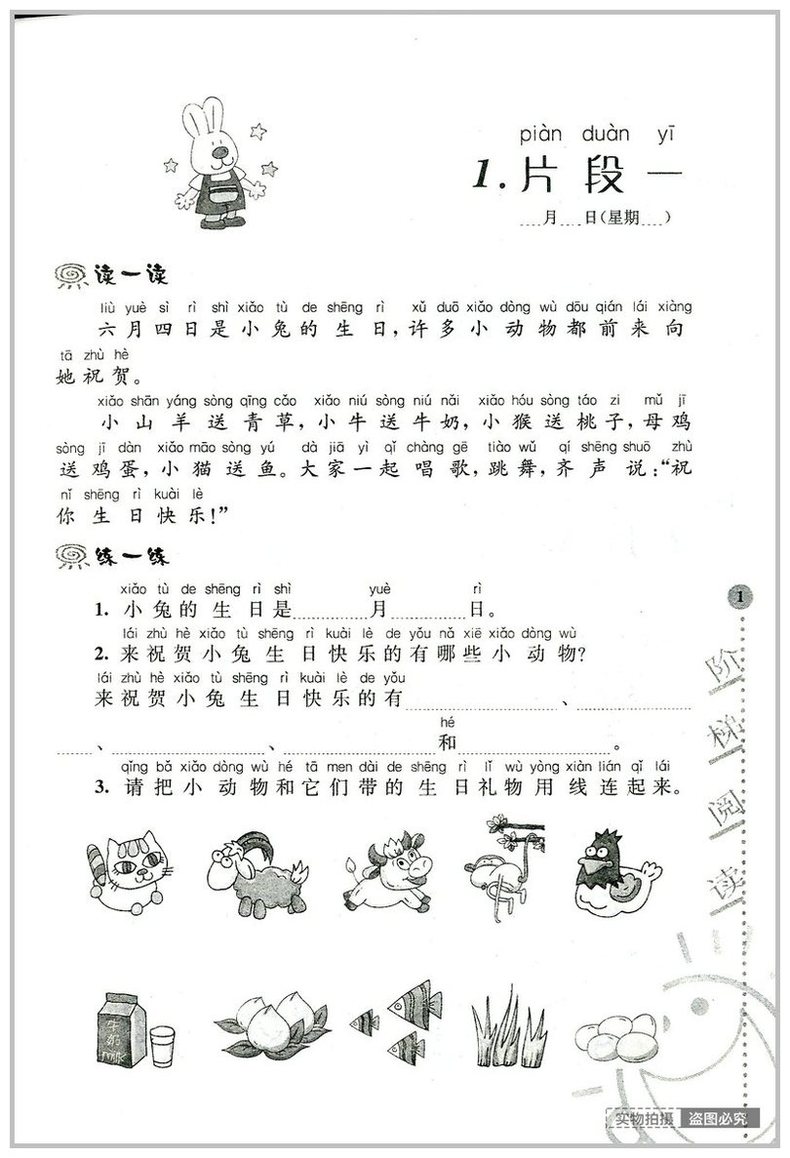 piàn duàn yī
1.片段一
月 日(星期 )
读一读
liù yuè sì rì shì xiǎo tù de shēng rì xǔ duō xiǎo dòng wù dōu qián lái xiàng
六月四日是小兔的生日，许多小动物都前来向
tā zhù hè
她祝贺。
xiǎo shān yáng sòng qīng cǎo xiǎo niú sòng niú nǎi xiǎo hóu sòng táo zi mǔ jī
小山羊送青草，小牛送牛奶，小猴送桃子，母鸡
sòng jī dàn xiǎo māo sòng yú dà jiā yì qǐ chàng gē tiào wǔ qí shēng shuō zhù
送鸡蛋，小猫送鱼。大家一起唱歌，跳舞，齐声说：“祝
nǐ shēng rì kuài lè
你生日快乐！”
练一练
xiǎo tù de shēng rì shì yuè rì
1. 小兔的生日是 月 日。
lái zhù hè xiǎo tù shēng rì kuài lè de yǒu nǎ xiē xiǎo dòng wù
2. 来祝贺小兔生日快乐的有哪些小动物？
lái zhù hè xiǎo tù shēng rì kuài lè de yǒu
来祝贺小兔生日快乐的有 、
hé
、 、 和 。
qǐng bǎ xiǎo dòng wù hé tā men dài de shēng rì lǐ wù yòng xiàn lián qǐ lái
3. 请把小动物和它们带的生日礼物用线连起来。
牛奶
milk
1
阶梯阅读
实物拍摄 盗图必究